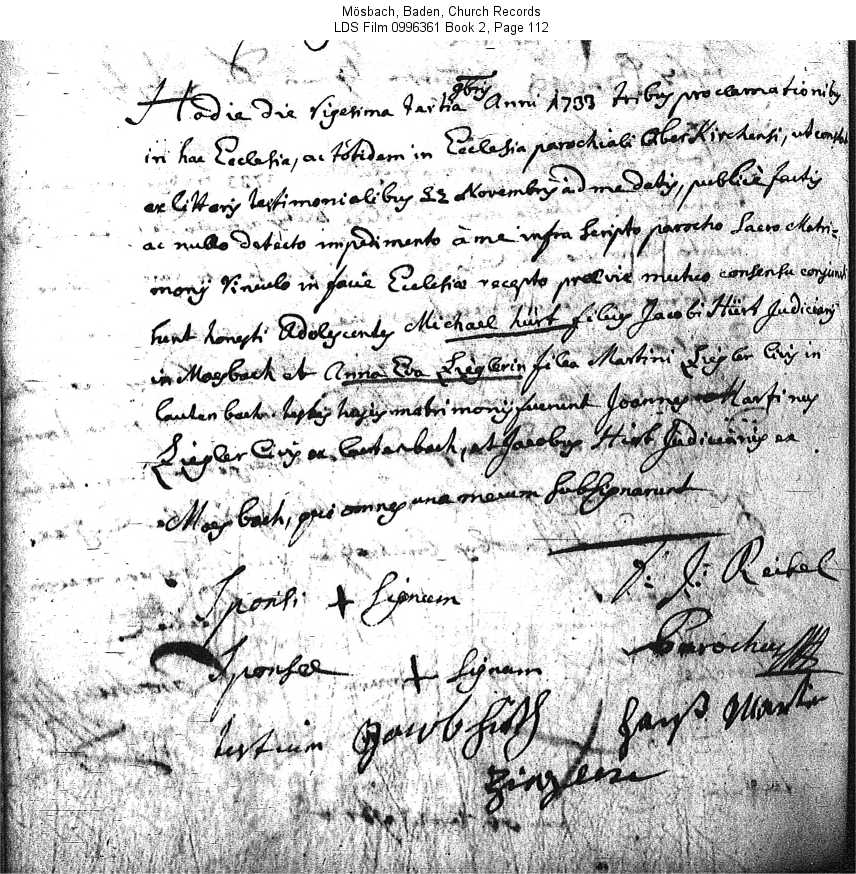 Mösbach, Baden, Church Records
LDS Film 0996361 Book 2, Page 112
Hodie die Vigesima tertia 9bris Anni 1733 tribus proclamationibus
in hac Ecclesia, ac totidem in Ecclesia parochiali OberKirchensi, ut constat
ex litteris testimonialibus 22 Novembris ad me datis, publicè factis
ac nullo detecto impedimento à me infra scripto parocho Sacro Matri=
monij Vinculo in facie Ecclesiae recepto praevie mutuo consensu conjuncti
sunt honesti Adolescentes Michael hürt filius Jacobi Hürt Judiciarij
in Moesbach et Anna Eva Zieglerin filia Martini Ziegler Civis in
lautenbach testes hujus matrimonij fuerunt Joannes Martinus
Ziegler Civis ex lautenbach, et Jacobus Hirt Judiciarius ex
Moesbach, qui omnes una mecum subsignarunt
Sponsi + Signum
J: J: Reibel
Parochus
Sponsae + Signum
testium Jacob hirth hanß Martin
Ziegler